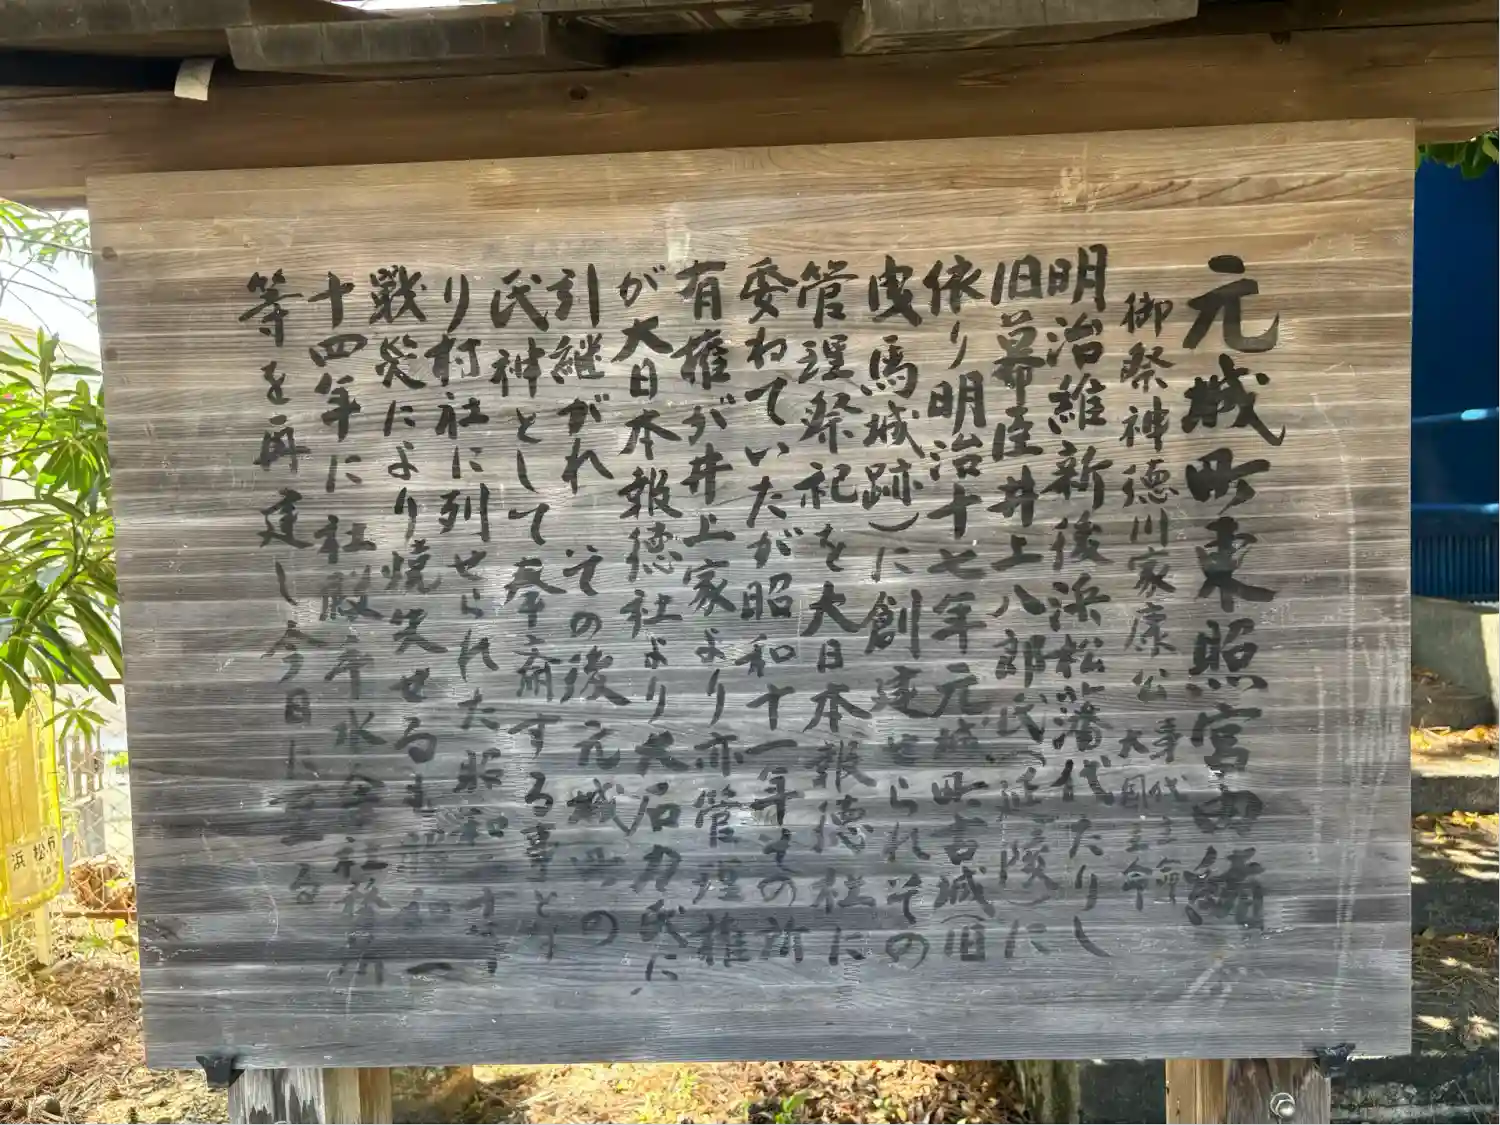 元城町東照宮由緒
御祭神徳川家康公 事代主命
大国主命
明治維新後浜松藩代たりし
旧幕臣井上八郎氏(延陵)に
依り明治十七年元城町古城(旧
曳馬城跡)に創建せられその
管理祭祀を大日本報徳社に
委ねていたが昭和十一年その所
有権が井上家より亦管理権
が大日本報徳社より大石力氏に
引継がれ その後元城町の
氏神として奉斎する事とな
り村社に列せられた昭和二十年
戦災により焼失せるも昭和三
十四年に社殿手水舎社務所
等を再建し今日に至る
浜松市